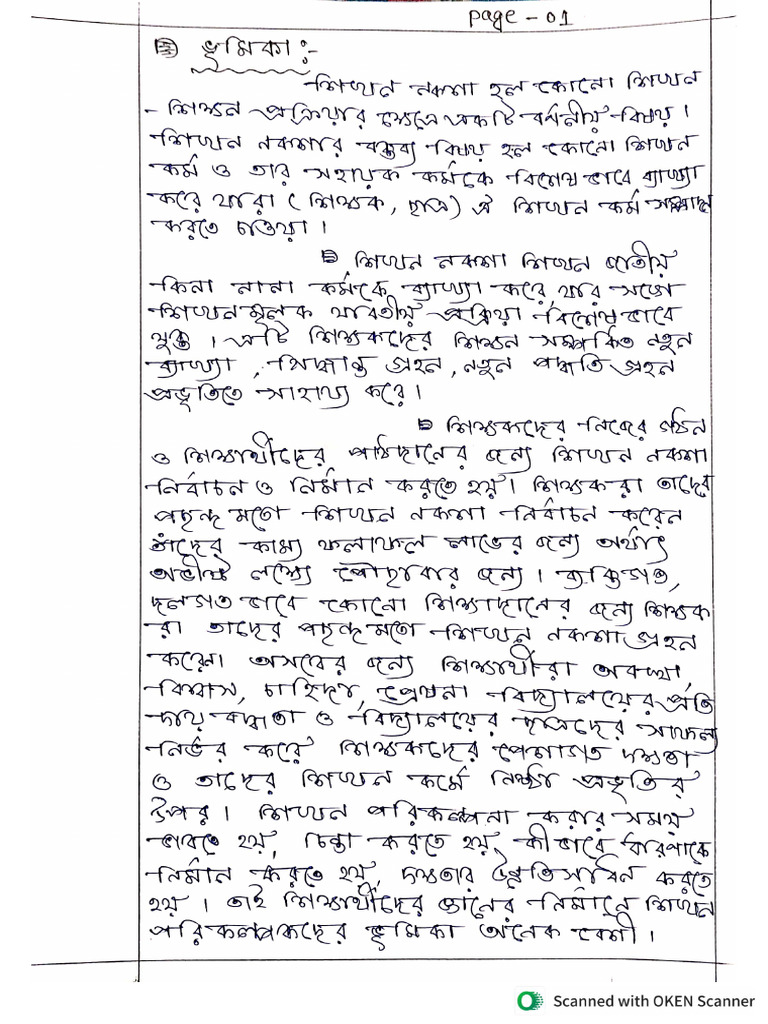 page - 01
ভূমিকা :-
শিখন নকশা হল কোনো শিখন
- শিক্ষন প্রক্রিয়ার ক্ষেত্রে একটি বর্ননীয় বিষয় ।
শিখন নকশার বক্তব্য বিষয় হল কোনো শিখন
কর্ম ও তার সহায়ক কর্মকে বিশেষ ভাবে ব্যাখ্যা
করে যারা ( শিক্ষক , ছাত্র ) ঐ শিখন কর্ম সম্পাদন
করতে চাওয়া ।
শিখন নকশা শিখন জাতীয়
কিনা নানা কর্মকে ব্যাখ্যা করে, যার সঙ্গে
শিখনমূলক যাবতীয় প্রক্রিয়া বিশেষ ভাবে
যুক্ত । এটি শিক্ষকদের শিক্ষন সম্পর্কিত নতুন
ব্যাখ্যা , সিদ্ধান্ত গ্রহন , নতুন পদ্ধতি গ্রহন
প্রভৃতিতে সাহায্য করে ।
শিক্ষকদের নিজের গঠন
ও শিক্ষার্থীদের পাঠদানের জন্য শিখন নকশা
নির্বাচন ও নির্মান করতে হয় । শিক্ষকরা তাদের
পছন্দ মতো শিখন নকশা নির্বাচন করেন
তাঁদের কাম্য ফলাফল লাভের জন্য অর্থাৎ
অভীষ্ট লক্ষ্যে পৌছাবার জন্য । ব্যক্তিগত,
দলগত ভাবে কোনো শিক্ষাদানের জন্য শিক্ষক
রা তাদের পছন্দ মতো শিখন নকশা গ্রহন
করেন। এসবের জন্য শিক্ষার্থীরা অবস্থা,
বিশ্বাস, চাহিদা, প্রেষনা বিদ্যালয়ের প্রতি
দায় বদ্ধতা ও বিদ্যালয়ের ছাত্রদের সাফল্য
নির্ভর করে শিক্ষকদের পেশাগত দক্ষতা
ও তাদের শিখন কর্মে নিষ্ঠা প্রভৃতির
উপর । শিখন পরিকল্পনা করার সময়
ভাবতে হয়, চিন্তা করতে হয়, কীভাবে
নির্মান করতে হয়, দক্ষতার উন্নতিসাধন করতে
হয় । তাই শিক্ষার্থীদের জ্ঞানের নির্মানে শিখন
পরিকল্পকদের ভূমিকা অনেক বেশী ।
Scanned with OKEN Scanner